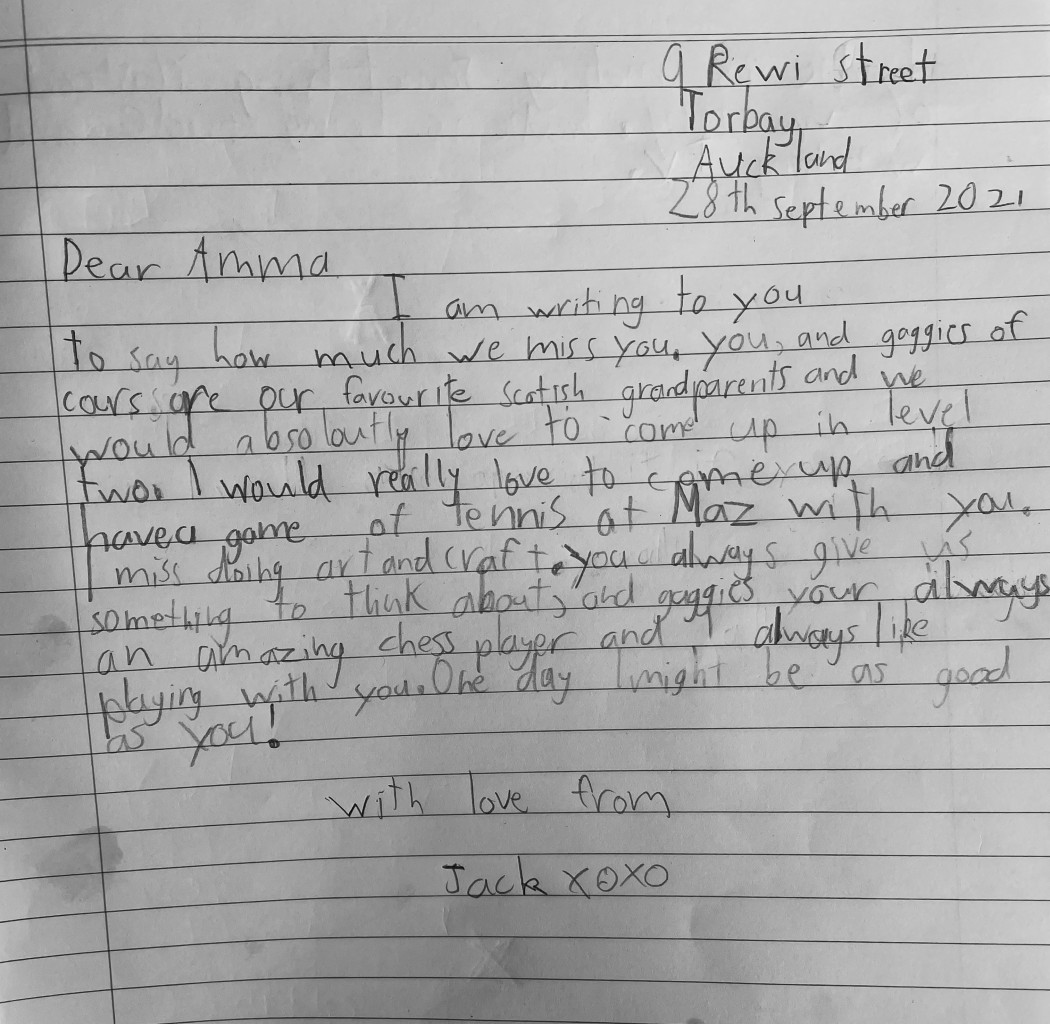 9 Rewi street
Torbay,
Auckland
28th september 2021
Dear Amma
I am writing to you
to say how much we miss you. you, and gaggies of
cours are our favourite scotish grandparents and we
would absoloutly love to come up in level
two. I would really love to come up and
have a game of tennis at Maz with you.
I miss doing art and craft. you always give us
something to think about, and gaggies your always
an amazing chess player and I always like
playing with you. One day I might be as good
as you!
with love from
Jack xoxo